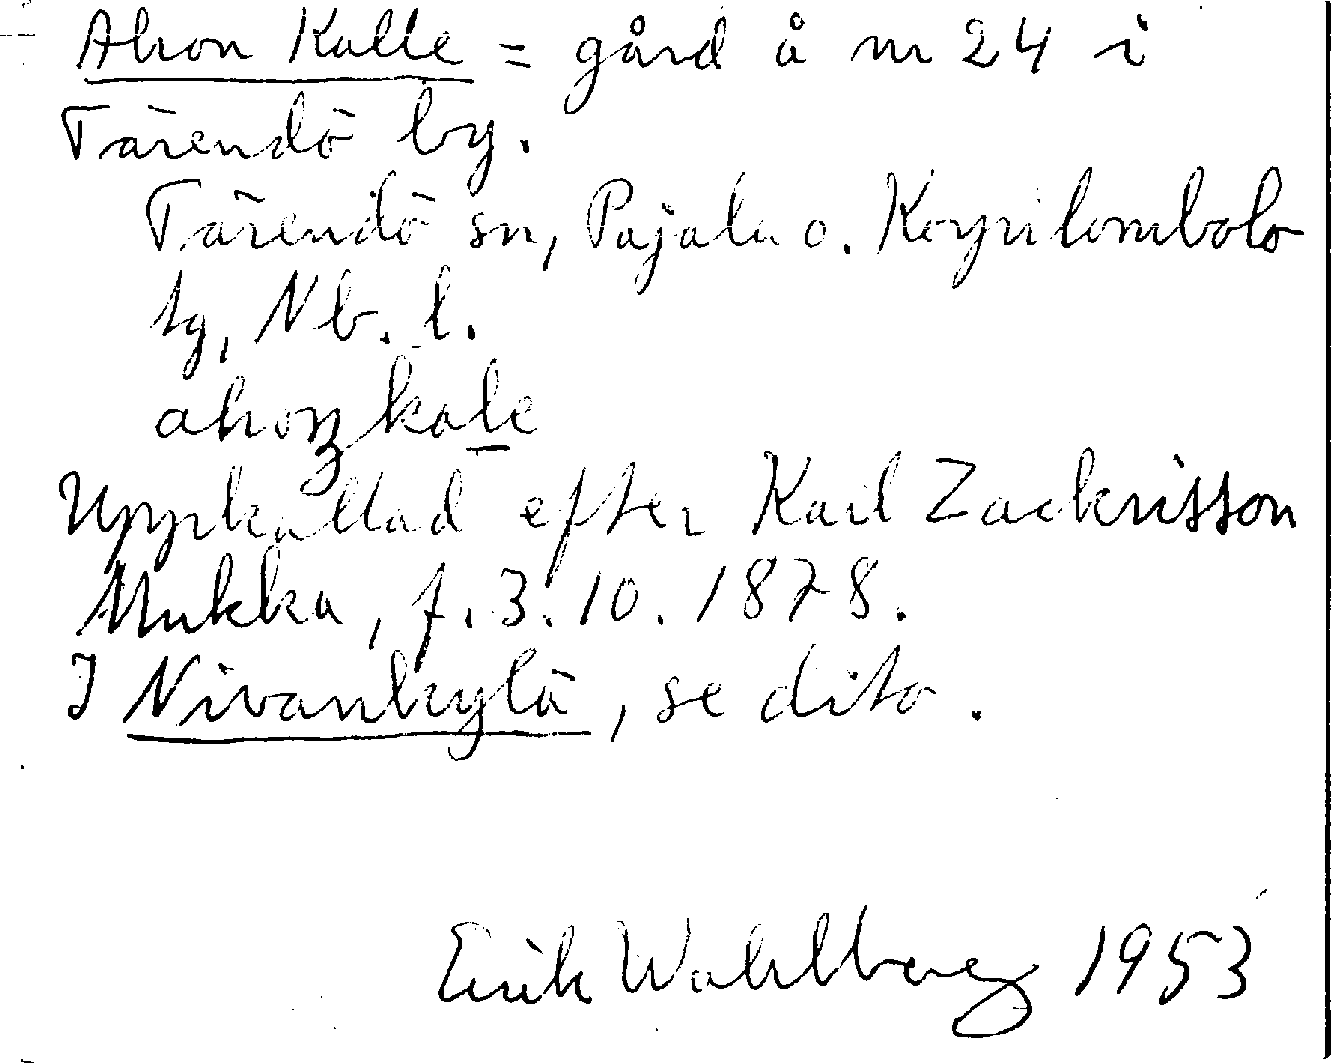 Ahon Kalle = gård å nr 24 i
Tärendö by.
Tärendö sn, Pajala o. Korpilombolo
tg, Nb. l.
ahoŋkale
Uppkallad efter Karl Zackrisson
Mukka, f. 3.10.1878.
I Nivankylä, se dito.
Erik Wahlberg 1953